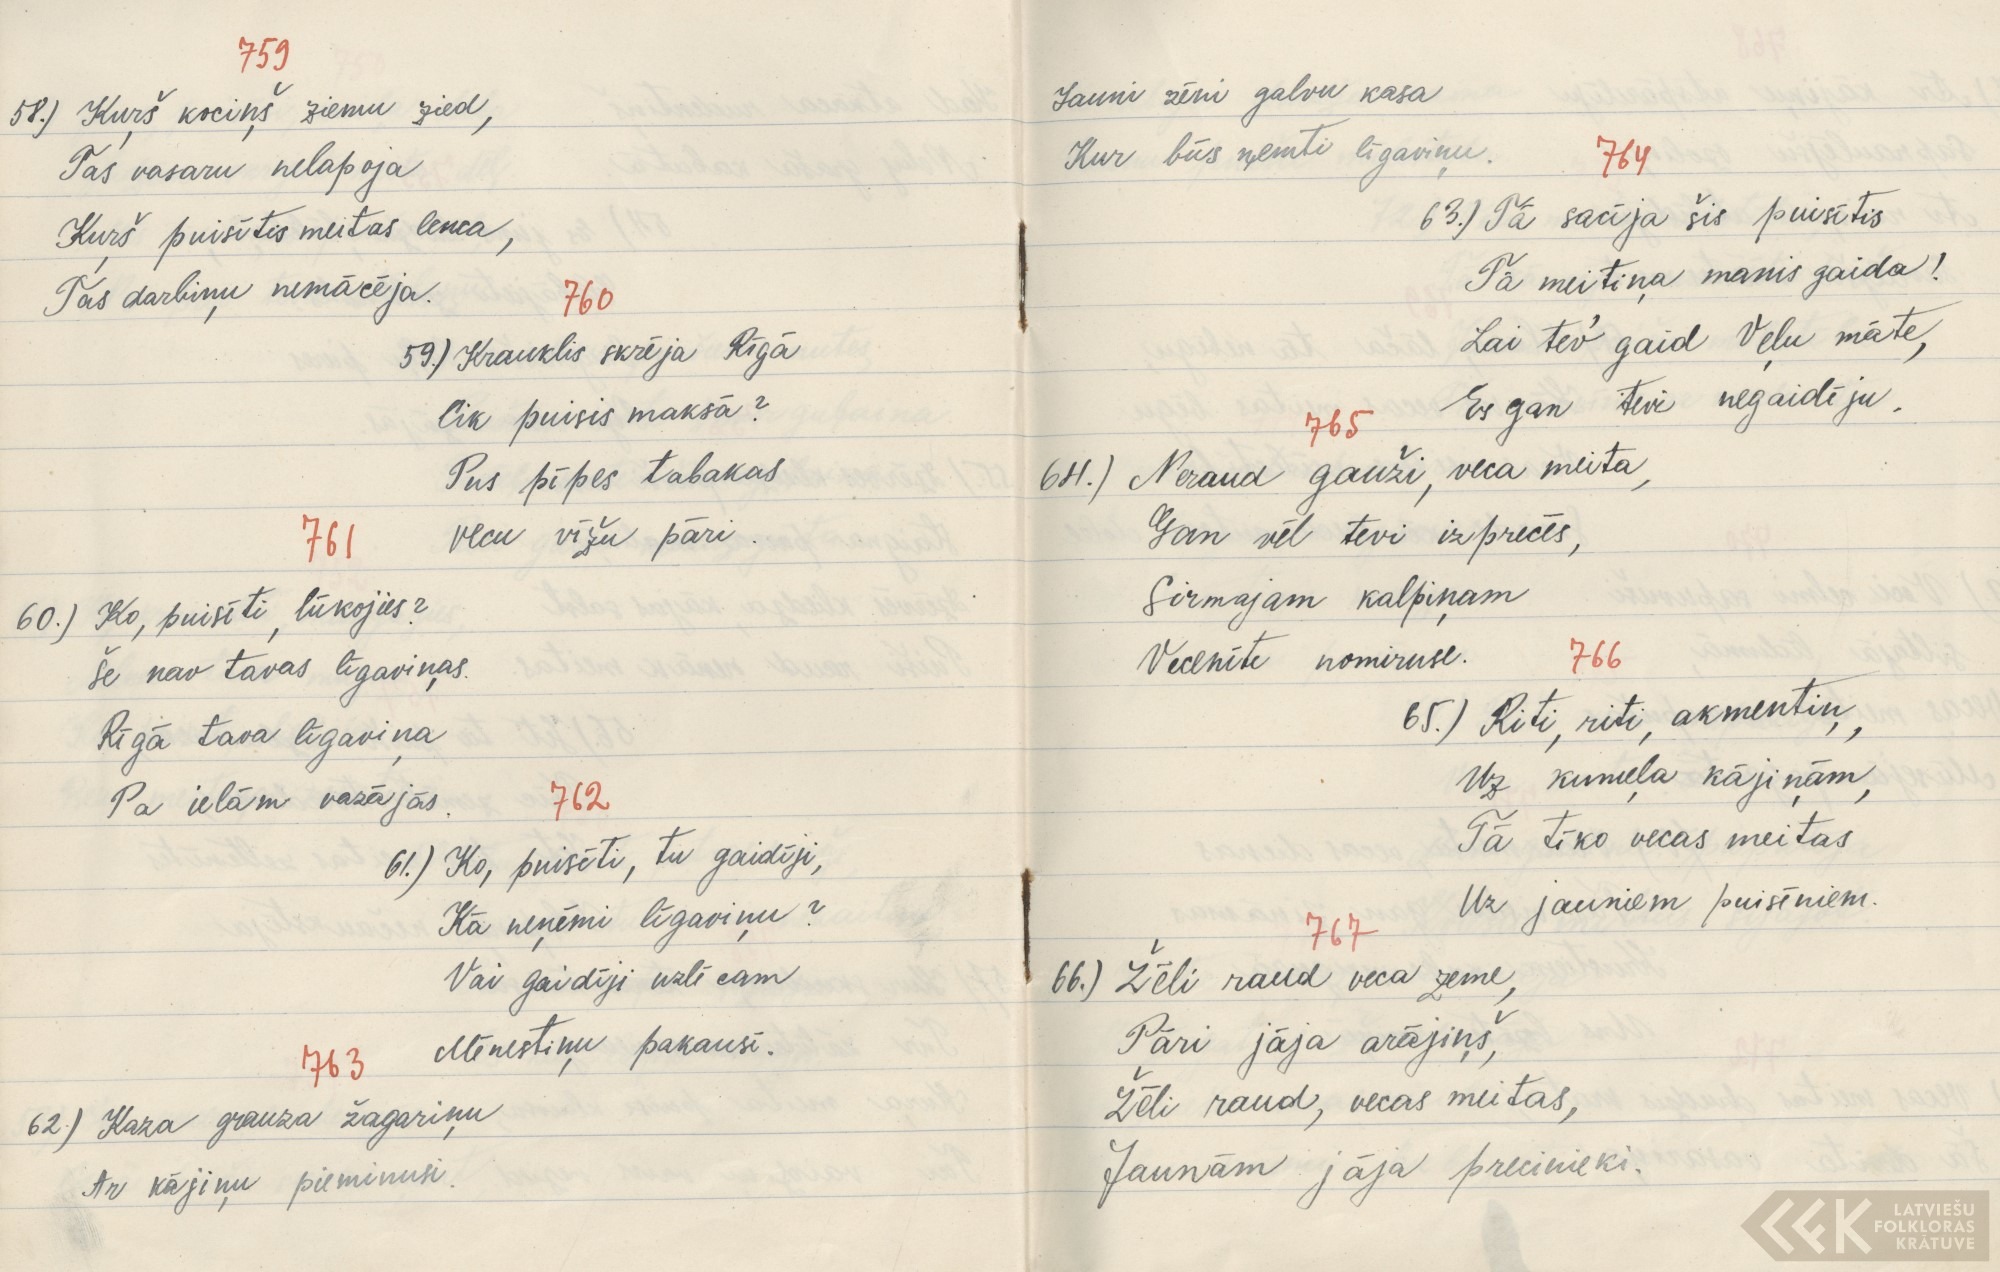 759
58.) Kuŗš kociņš ziemu zied,
Tas vasaru nelapoja
Kuŗš puisītis meitas lenca,
Tas darbiņu nemācēja.
760
59.) Krauklis skrēja Rīgā
Cik puisis maksā?
Pus pīpes tabakas
vecu vīžu pāri.
761
60.) Ko, puisīti, lūkojies?
Še nav tavas līgaviņas.
Rīgā tava līgaviņa
Pa ielām vazājās.
762
61.) Ko, puisīti, tu gaidīji,
Kā neņēmi līgaviņu?
Vai gaidīji uzlēcam
Mēnestiņu pakausī.
763
62.) Kaza grauza žagariņu
Ar kājiņu pieminusi.
Jauni zēni galvu kasa
Kur būs ņemti līgaviņu.
764
63.) Tā sacīja šis puisītis
Tā meitiņa manis gaida!
Lai tev' gaid Veļu māte,
Es gan tevi negaidīju.
765
64.) Neraud gauži, veca meita,
Gan vēl tevi izprecēs,
Sirmajam kalpiņam
Vecenīte nomiruse.
766
65.) Riti, riti, akmentiņ,
Uz kumeļa kājiņām,
Tā tīko vecas meitas
Uz jauniem puisēniem.
767
66.) Žēli raud veca zeme,
Pāri jāja arājiņš,
Žēli raud, vecas meitas,
Jaunām jāja precinieki.
LATVIEŠU
FOLKLORAS
KRĀTUVE